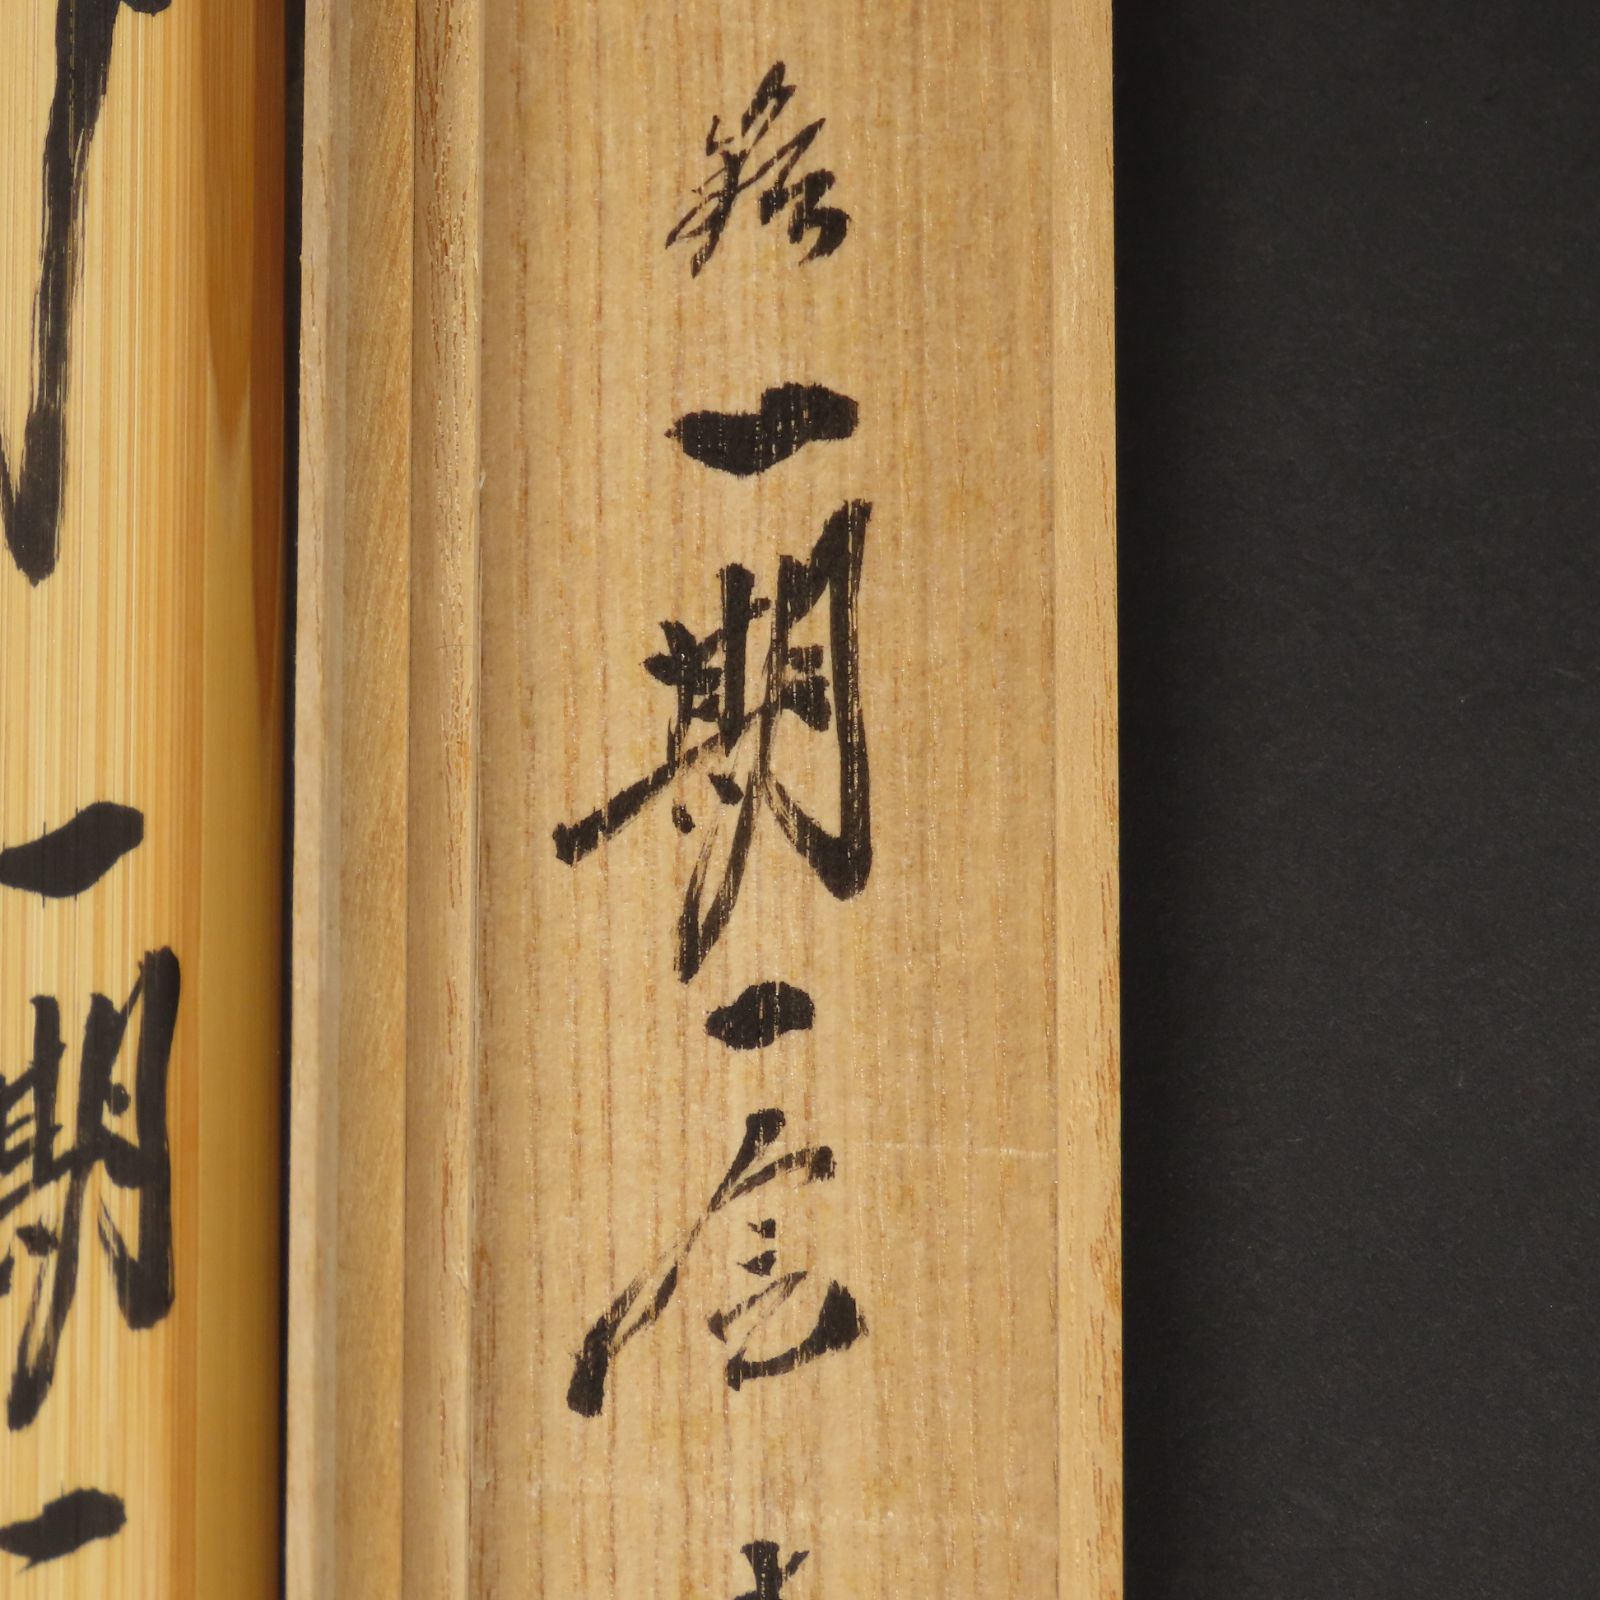 銘 一期一会
一期一